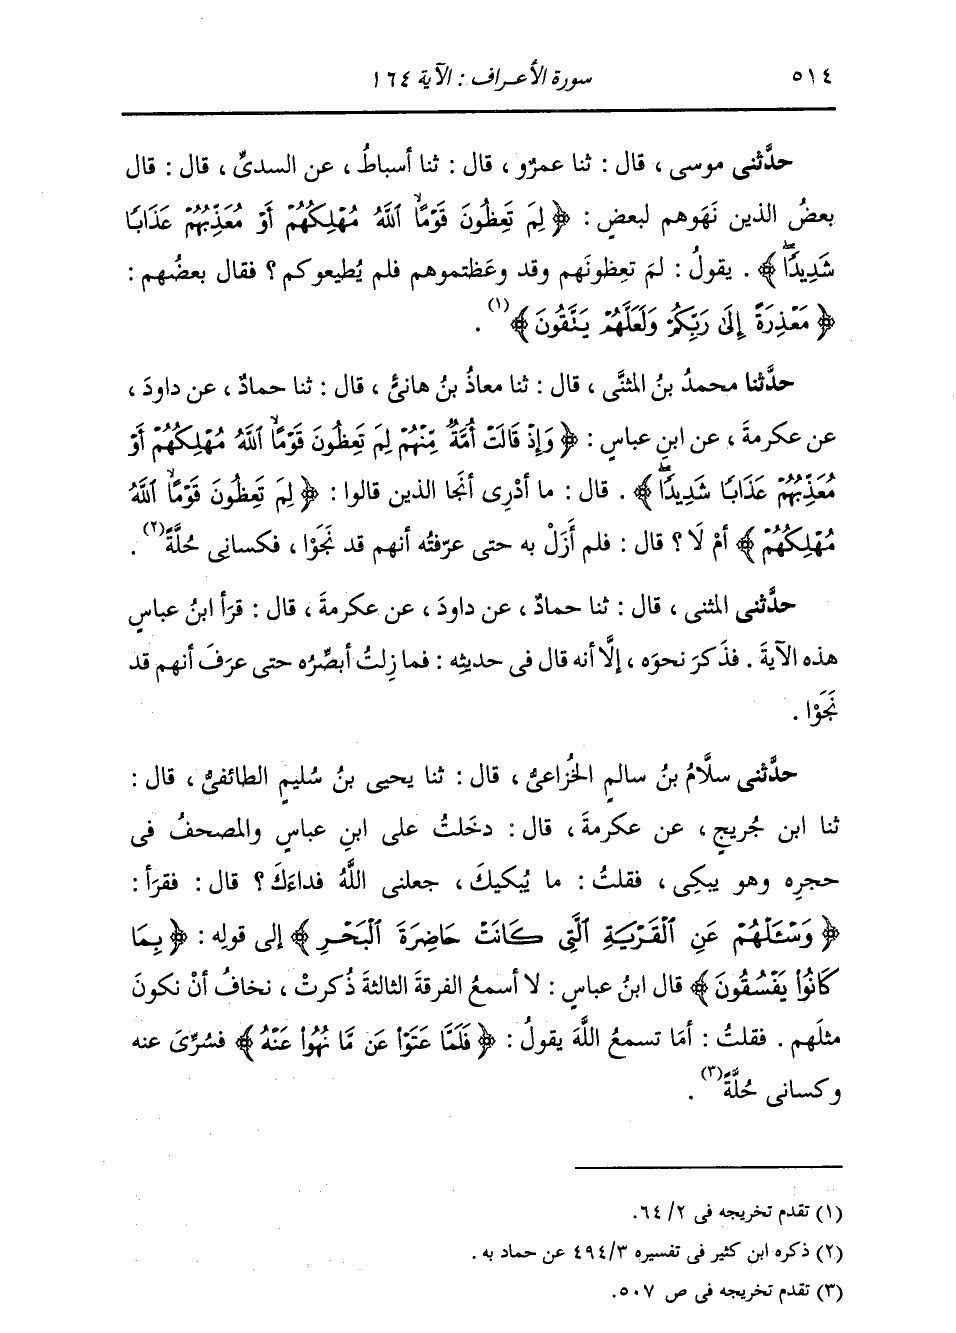 ٥١٤ سورة الأعراف : الآية ١٦٤
حدَّثنى موسى ، قال : ثنا عمرٌو ، قال : ثنا أسباطُ ، عن السدىِّ ، قال : قال
بعضُ الذين نَهَوهم لبعضٍ : ﴿ لِمَ تَعِظُونَ قَوْمًا ٱللَّهُ مُهْلِكُهُمْ أَوْ مُعَذِّبُهُمْ عَذَابًا
شَدِيدًا ﴾ . يقولُ : لمَ تعِظونَهم وقد وعَظتموهم فلم يُطيعوكم ؟ فقال بعضُهم :
﴿ مَعْذِرَةً إِلَىٰ رَبِّكُمْ وَلَعَلَّهُمْ يَتَّقُونَ ﴾(١) .
حدَّثنا محمدُ بنُ المثنَّى ، قال : ثنا معاذُ بنُ هانئً ، قال : ثنا حمادٌ ، عن داودَ ،
عن عكرمةَ ، عن ابنِ عباسٍ : ﴿ وَإِذْ قَالَتْ أُمَّةٌ مِّنْهُمْ لِمَ تَعِظُونَ قَوْمًا ٱللَّهُ مُهْلِكُهُمْ أَوْ
مُعَذِّبُهُمْ عَذَابًا شَدِيدًا ﴾ . قال : ما أدْرِى أنَجا الذين قالوا : ﴿ لِمَ تَعِظُونَ قَوْمًا ٱللَّهُ
مُهْلِكُهُمْ ﴾ أمْ لَا ؟ قال : فلم أَزَلْ به حتى عرّفتُه أنهم قد نَجَوْا ، فكسانى حُلَّةً(٢) .
حدَّثنى المثنى ، قال : ثنا حمادٌ ، عن داودَ ، عن عكرمةَ ، قال : قرَأ ابنُ عباسٍ
هذه الآيةَ . فذكرَ نحوَه ، إلَّا أنه قال فى حديثِه : فما زِلتُ أبصِّرُه حتى عرَفَ أنهم قد
نَجَوْا .
حدَّثنى سلَّامُ بنُ سالمٍ الخُزاعىُّ ، قال : ثنا يحيى بنُ سُليمٍ الطائفىُّ ، قال :
ثنا ابن جُريجٍ ، عن عكرمةَ ، قال : دخَلتُ على ابنِ عباسٍ والمصحفُ فى
حجرِه وهو يبكِى ، فقلتُ : ما يُبكيكَ ، جعلنى اللَّهُ فداءَكَ ؟ قال : فقرَأ :
﴿ وَسْئَلْهُمْ عَنِ ٱلْقَرْيَةِ ٱلَّتِى كَانَتْ حَاضِرَةَ ٱلْبَحْرِ ﴾ إلى قولِه : ﴿ بِمَا
كَانُوا۟ يَفْسُقُونَ ﴾ قال ابنُ عباسٍ : لا أسمعُ الفرقةَ الثالثةَ ذُكرتْ ، نخافُ أنْ نكونَ
مثلَهم . فقلتُ : أمَا تسمعُ اللَّهَ يقولُ : ﴿ فَلَمَّا عَتَوْا۟ عَن مَّا نُهُوا۟ عَنْهُ ﴾ فسُرِّىَ عنه
وكسانى حُلَّةً(٣) .
(١) تقدم تخريجه فى ٦٤/٢.
(٢) ذكره ابن كثير فى تفسيره ٤٩٤/٣ عن حماد به .
(٣) تقدم تخريجه فى ص ٥٠٧.